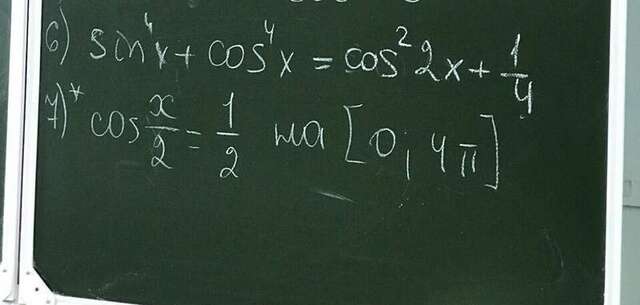 6) sin⁴x + cos⁴x = cos²2x + 1/4
7)* cos x/2 = 1/2 на [0; 4π]